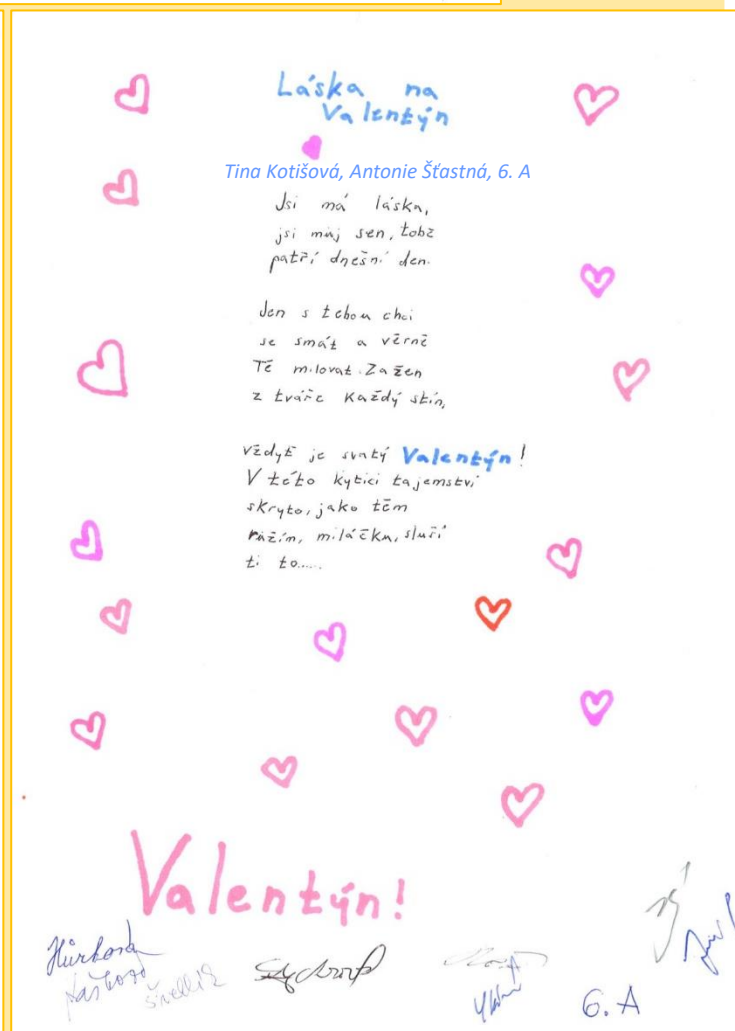 Láska na
Valentýn
Tina Kotišová, Antonie Šťastná, 6. A
Jsi má láska,
jsi můj sen, tobě
patří dnešní den.
Jen s tebou chci
se smát a věrně
Tě milovat. Zažen
z tváře každý stín,
vždyť je svatý Valentýn!
V této kytici tajemství
skryto, jako těm
růžím, miláčku, sluší
ti to.....
Valentýn!
6. A